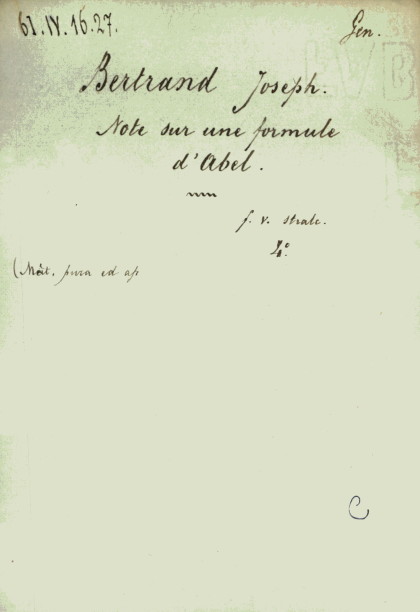 61.IV.16.27.
Gen.
Bertrand Joseph.
Note sur une formule
d'Abel.
f. v. stralc.
4º.
(Mat. pura ed ap
C